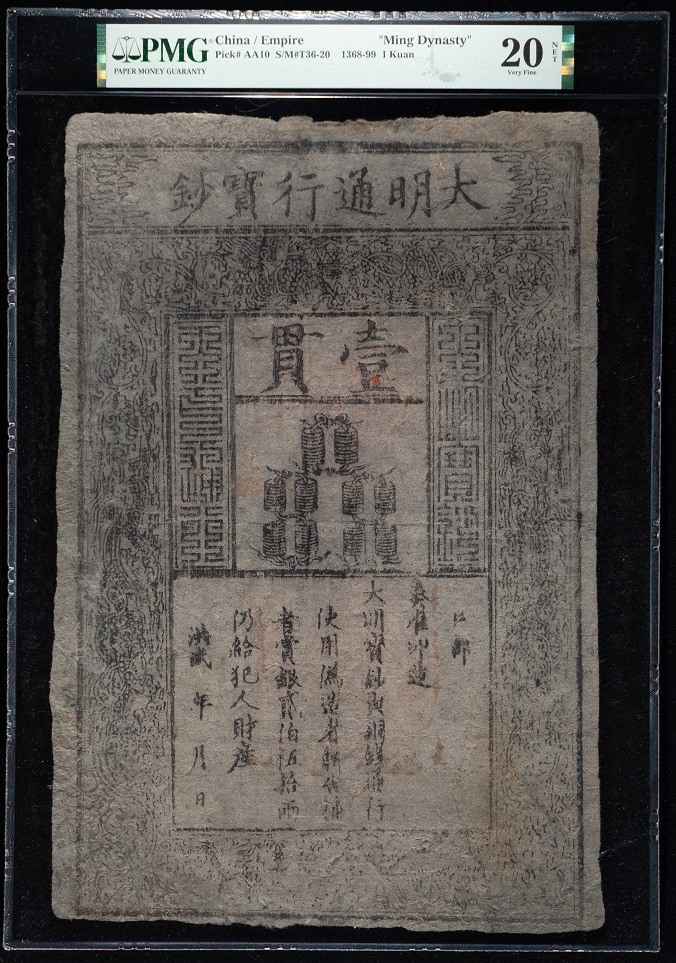 PMG
PAPER MONEY GUARANTY
China / Empire "Ming Dynasty"
Pick# AA10 S/M#T36-20 1368-99 1 Kuan
20 NET
Very Fine
大明通行寶鈔
壹貫
天下通行
大明寶鈔
部
奏准印造
大明寶鈔與銅錢通行
使用偽造者斬告捕
者賞銀貳伯伍拾兩
仍給犯人財產
洪武 年 月 日